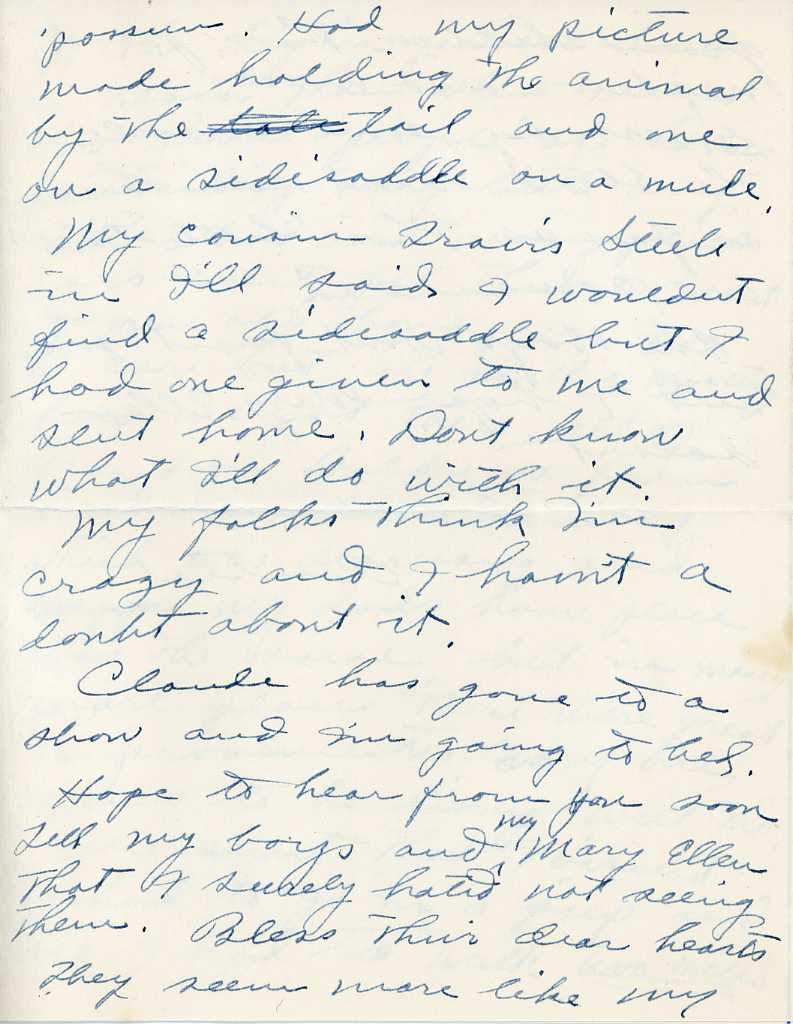 'possum. Had my picture
made holding the animal
by the tail and one
on a sidisaddle on a mule.
My cousin Travis Steele
in Ill said I wouldnt
find a sidesaddle but I
had one given to me and
sent home. Dont know
what I'll do with it.
My folks think I'm
crazy and I havn't a
doubt about it.
Claude has gone to a
show and I'm going to bed.
Hope to hear from you soon
Tell my boys and my Mary Ellen
that I surely hated not seeing
them. Bless their dear hearts
They seem more like my